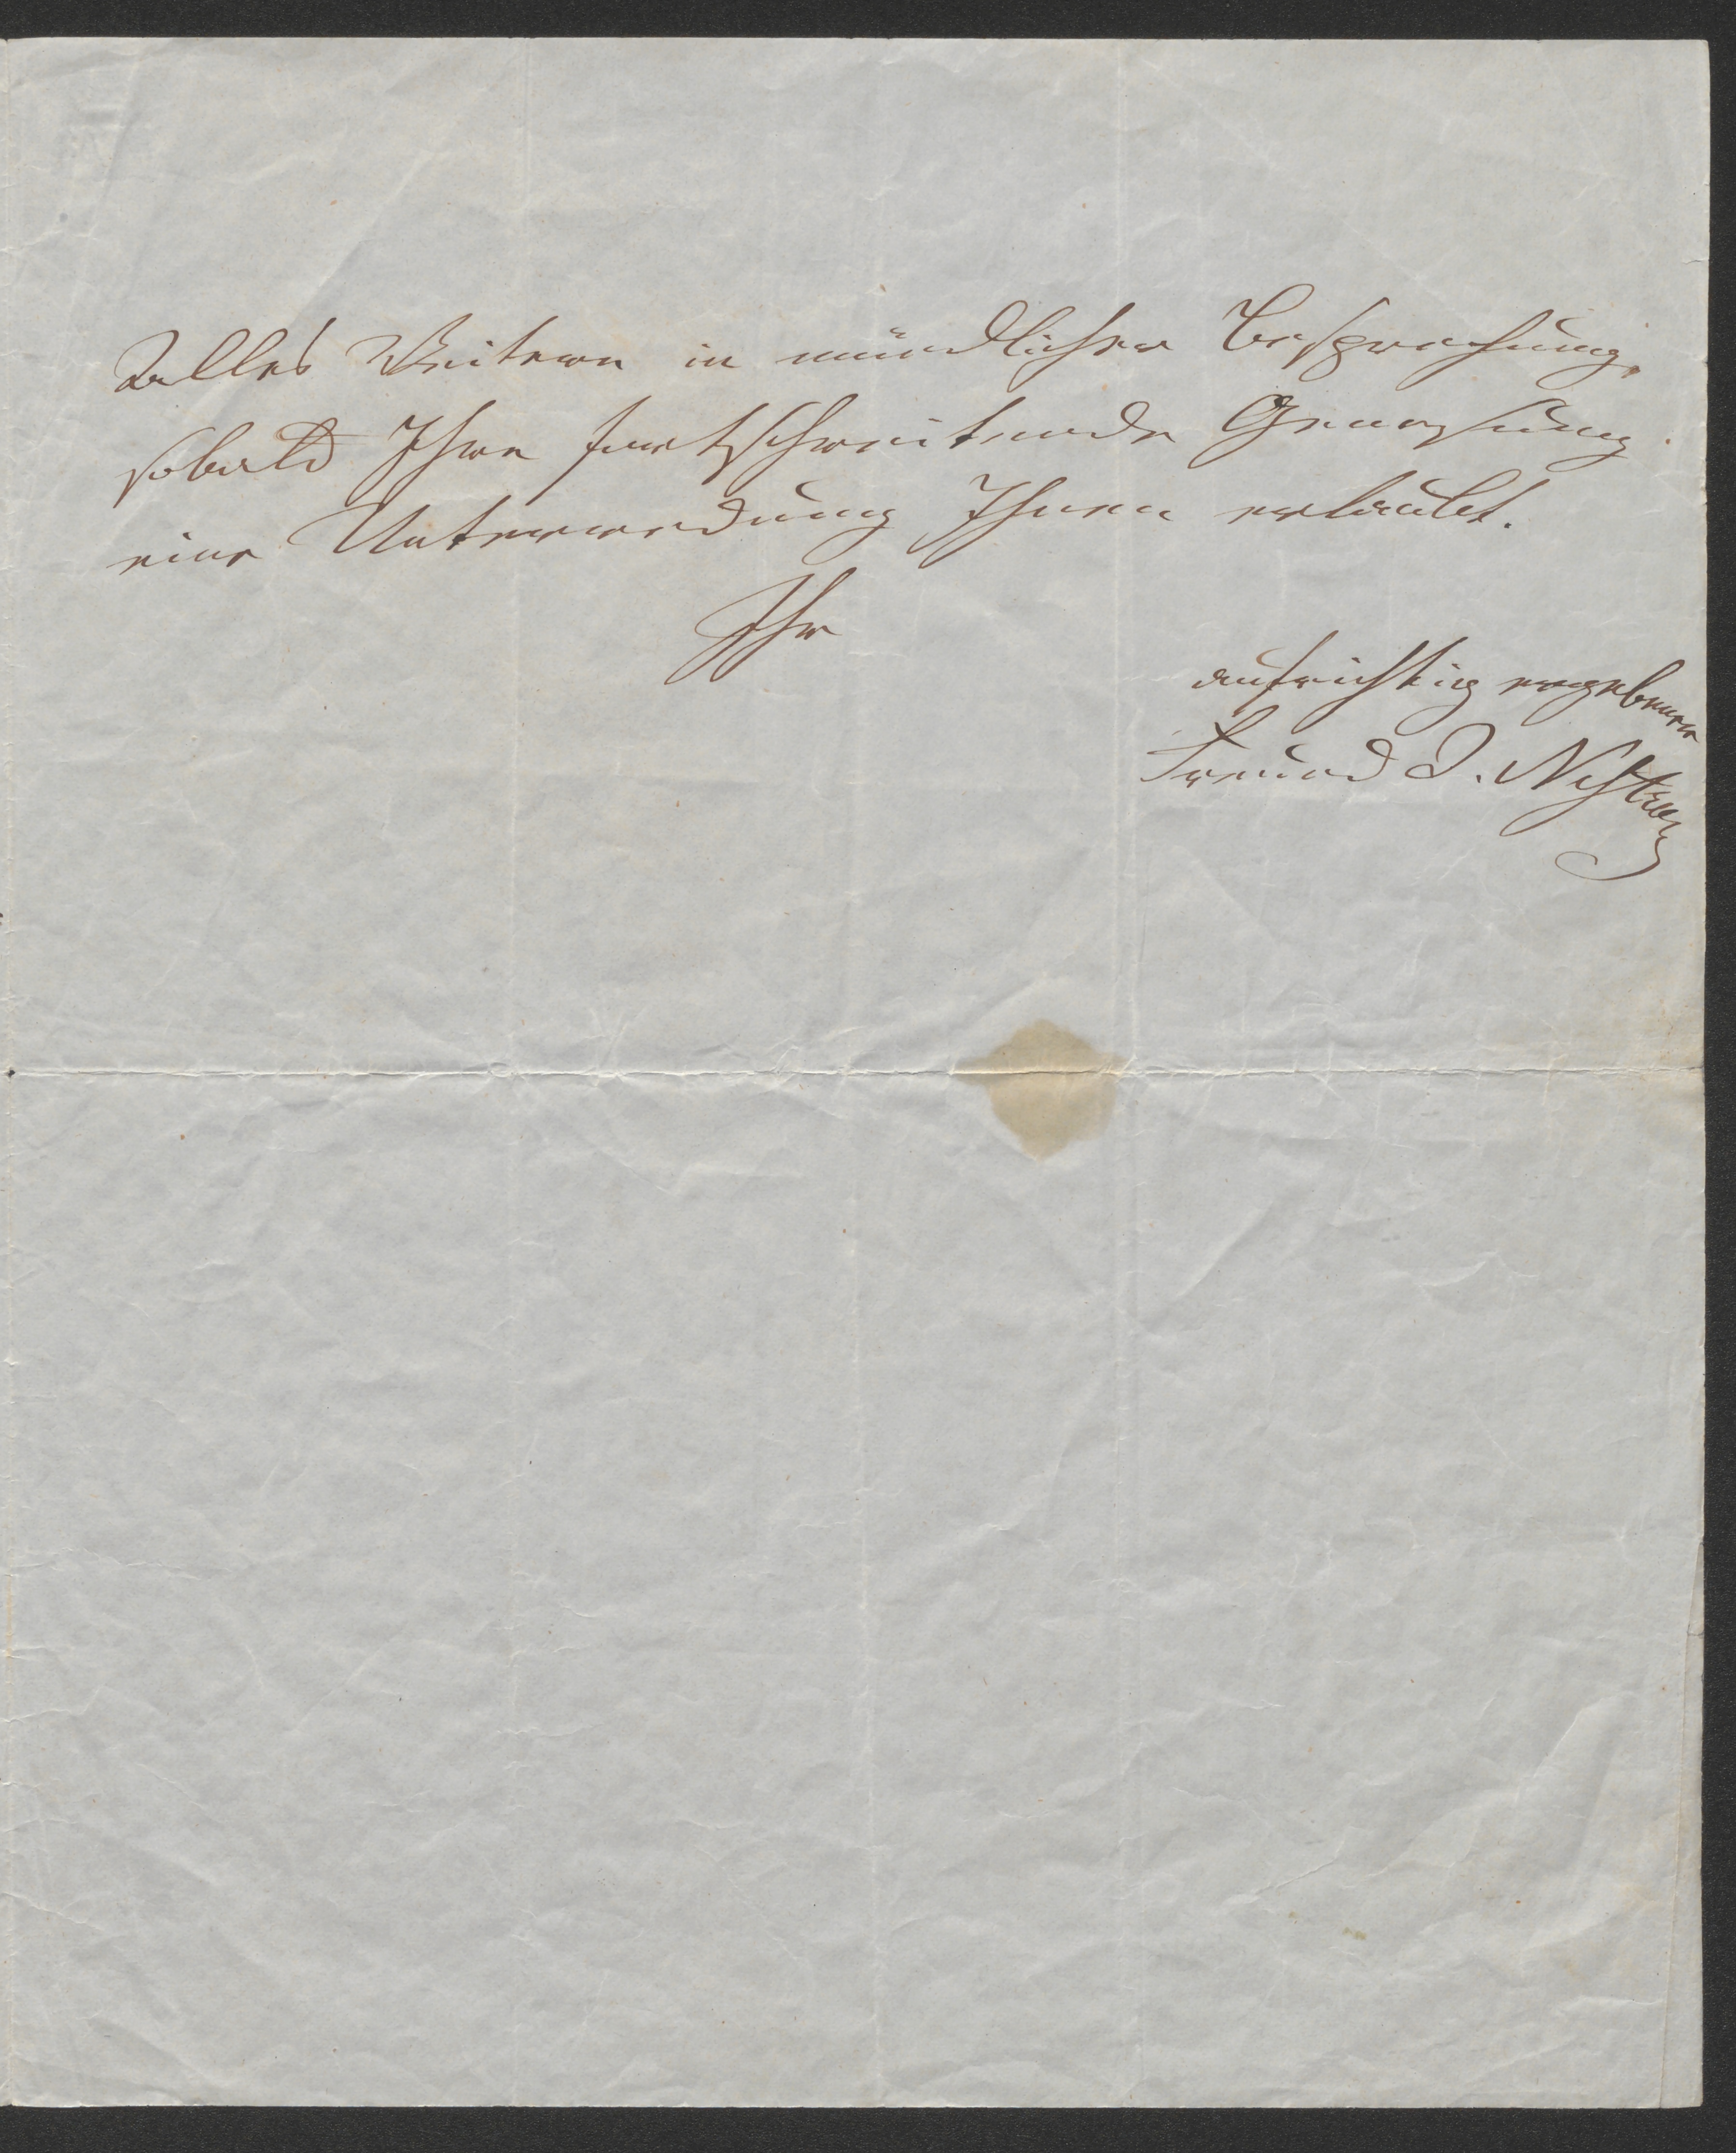 Alles Weitere in mündlicher Besprechung,
sobald Ihre fortschreitende Genesung
eine Unterredung Ihnen erlaubt.
Ihr
aufrichtig ergebener
Freund J. Nestroy